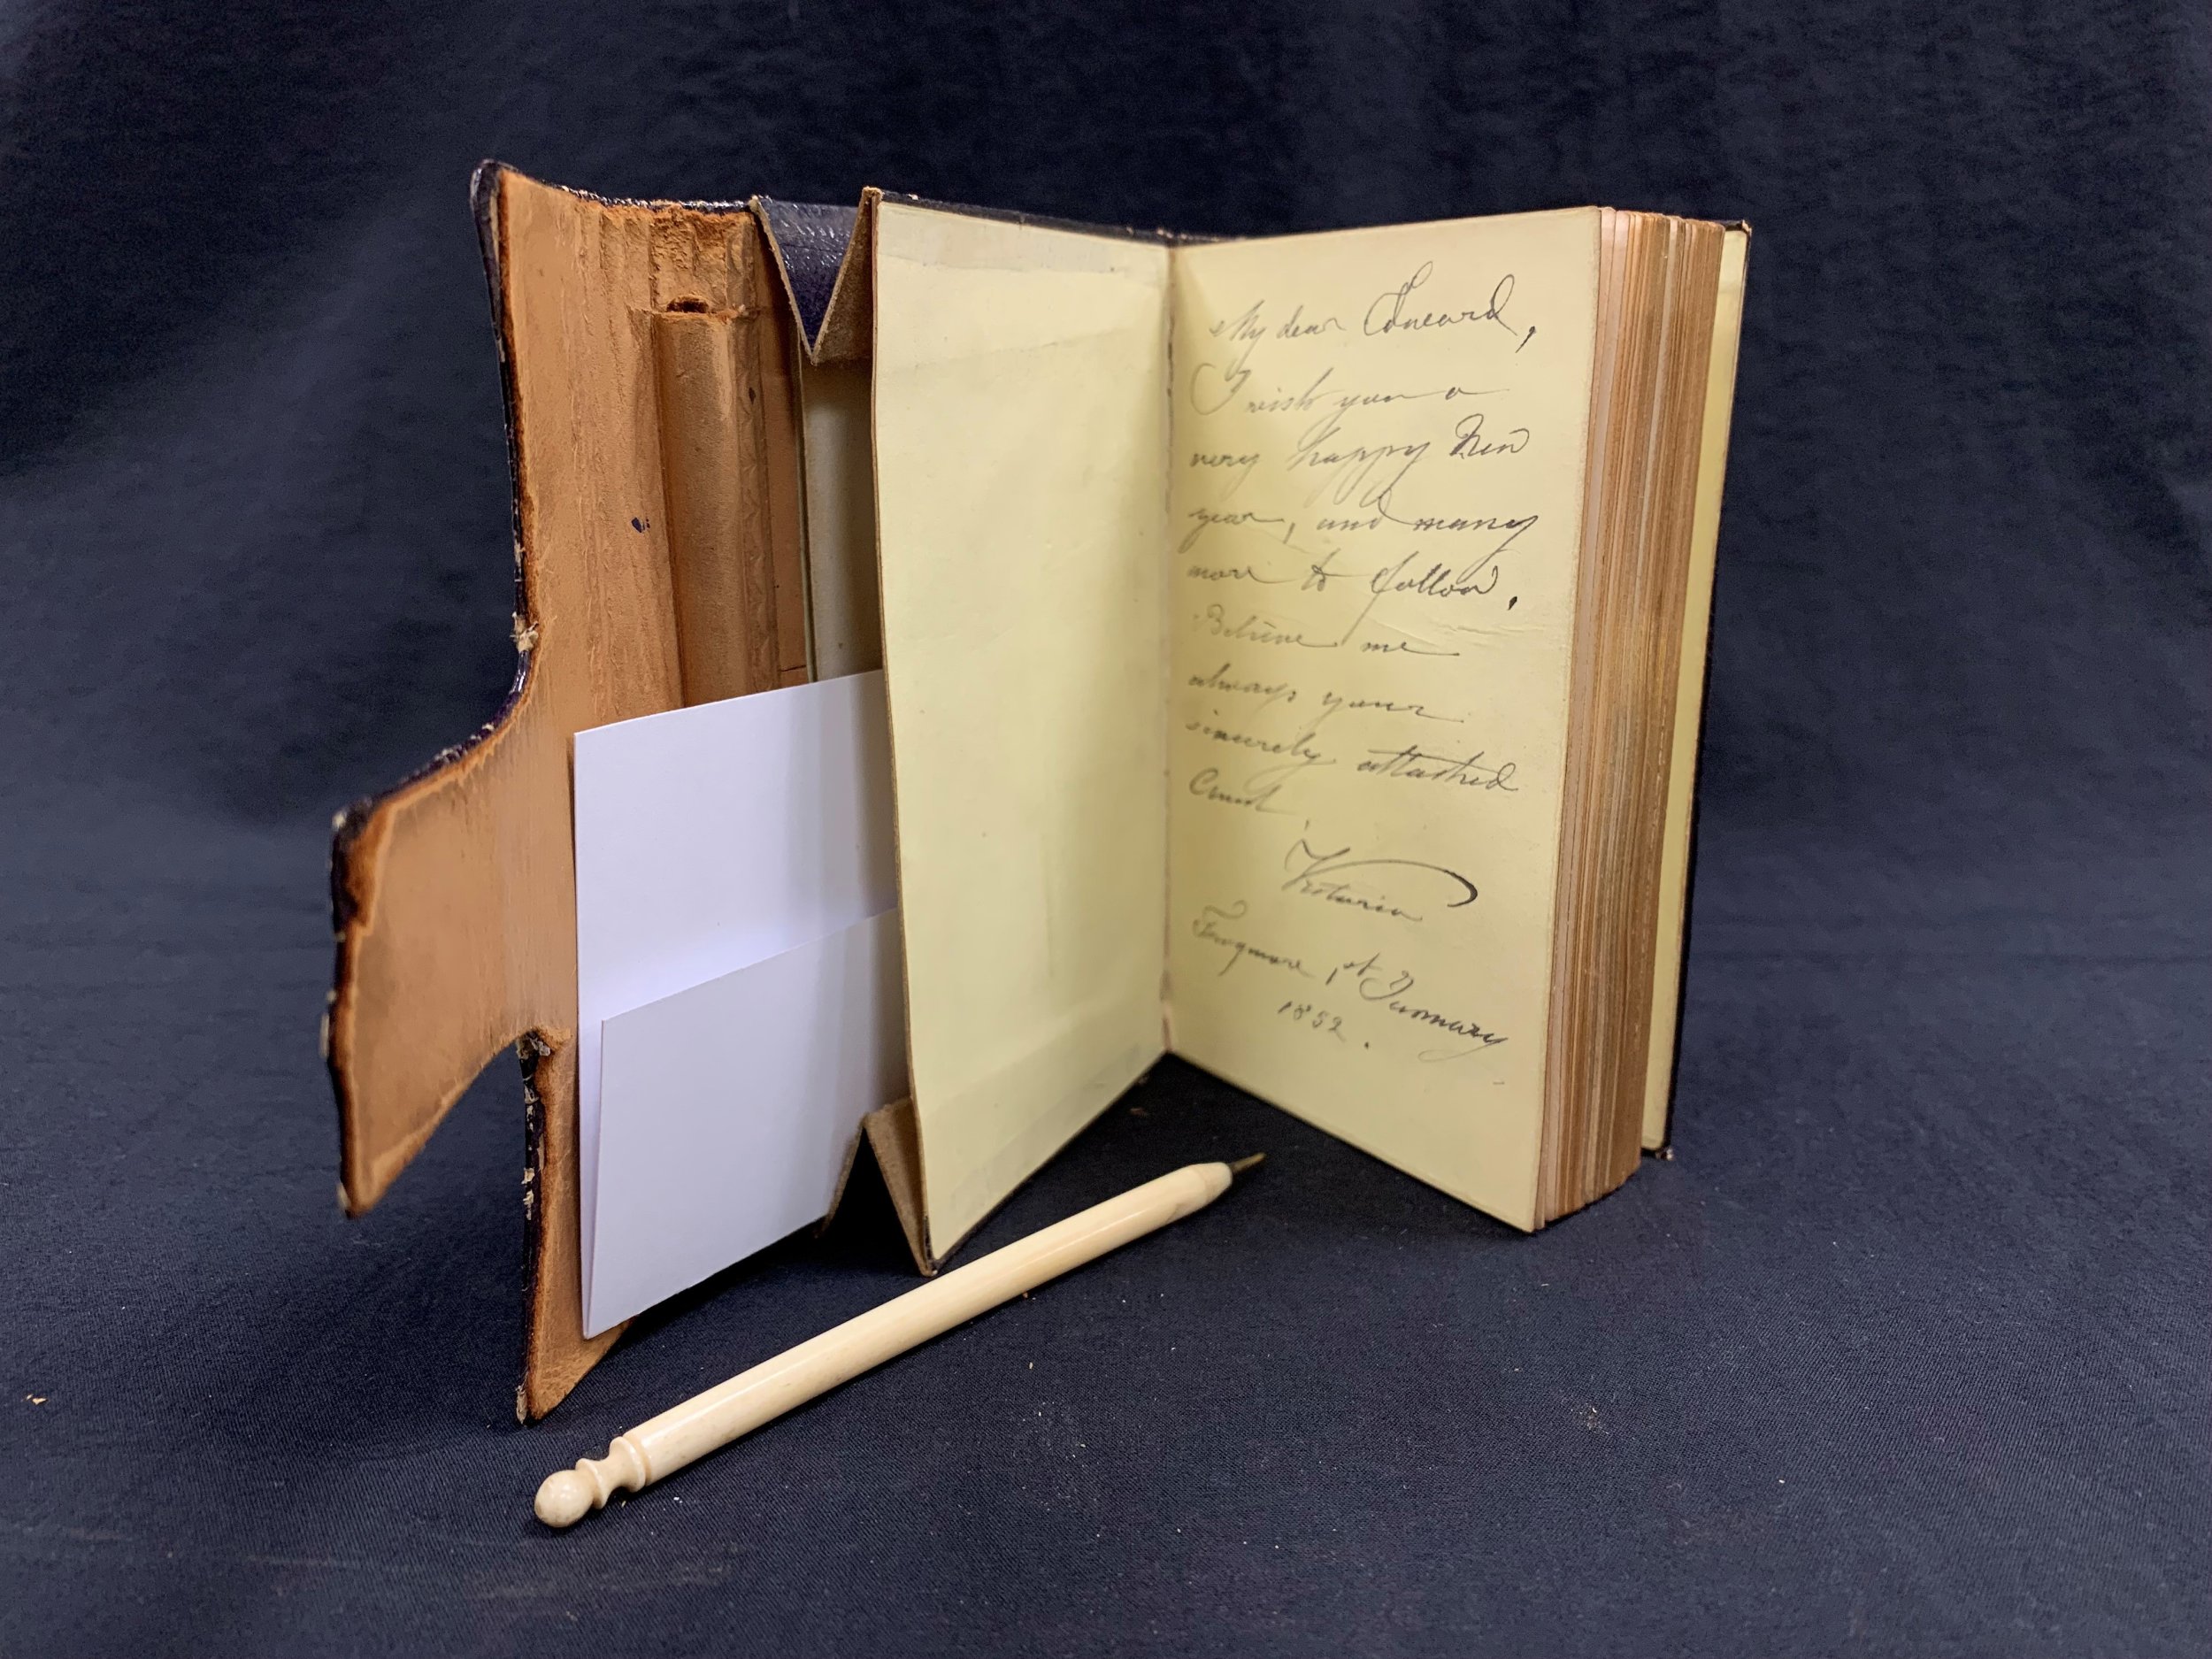 My dear Edward,
I wish you a
very happy New
year, and many
more to follow.
Believe me
always your
sincerely attached
Aunt
Victoria
Frogmore 1st January
1852.